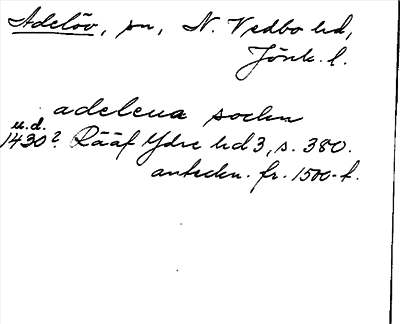 Adelöv, sn, N. Vedbo hd,
Jönk. l.
adeleua sockn
u.d.
1430? Rääf Ydre hd 3, s. 380.
anteckn. fr. 1500-t.